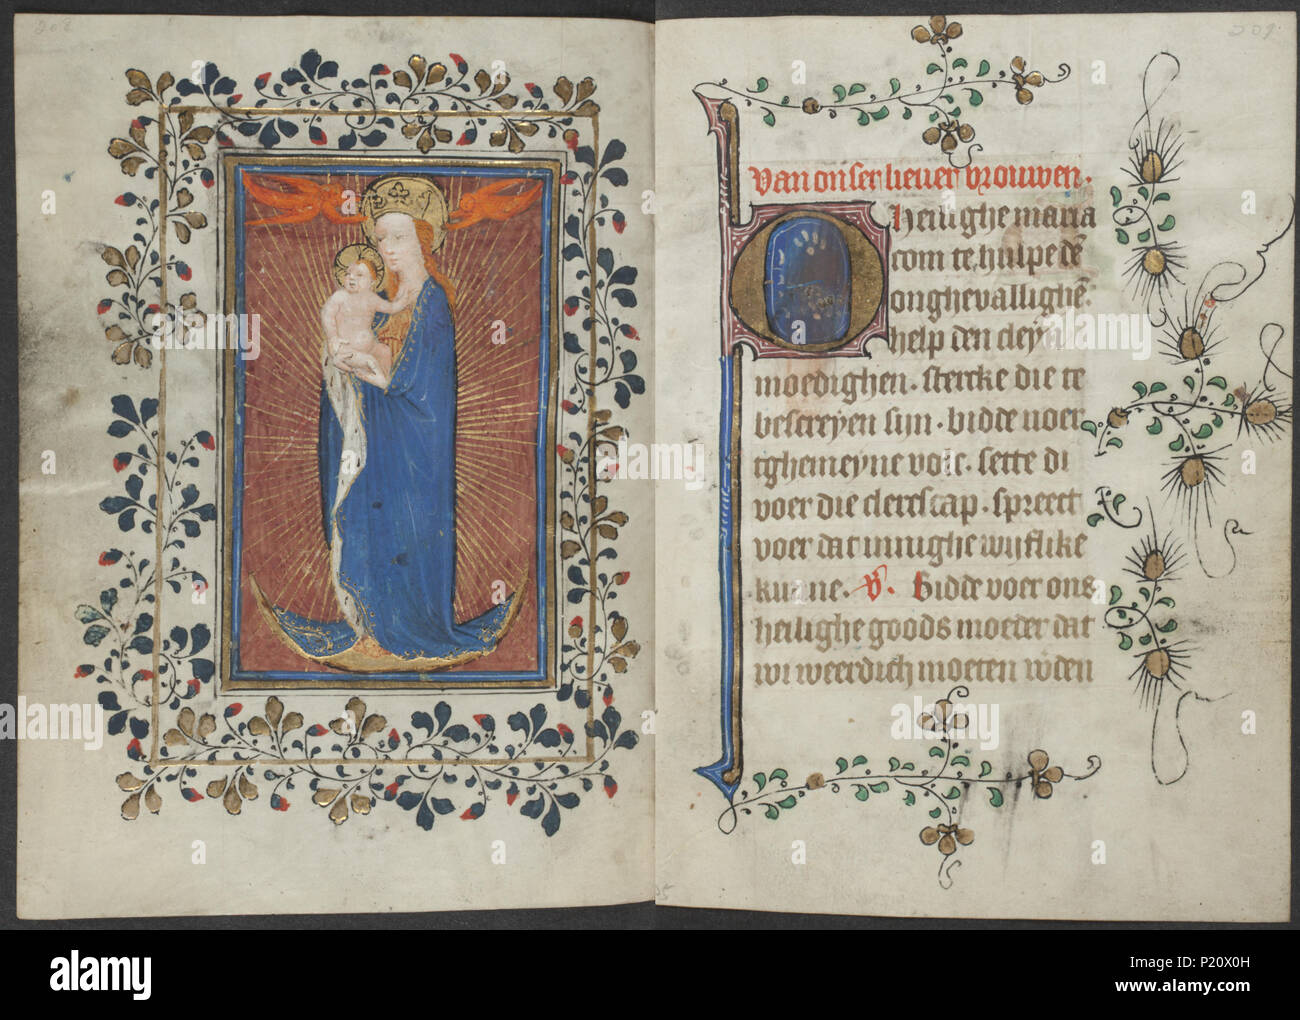 208
209
Van onser liever vrouwen.
O heilighe maria
com te hulpe dē
onghevallighē.
help den cleyn
moedighen. stercke die te
bescreyen sijn. bidde voer
tghemeyne volc. sette di
voer die clerscap. spreect
voer dat innighe wijflike
kunne. V. Bidde voer ons
heilighe goods moeder dat
wi weerdich moeten wden
alamy stock photo
alamy
Image ID: P20X0H
www.alamy.com